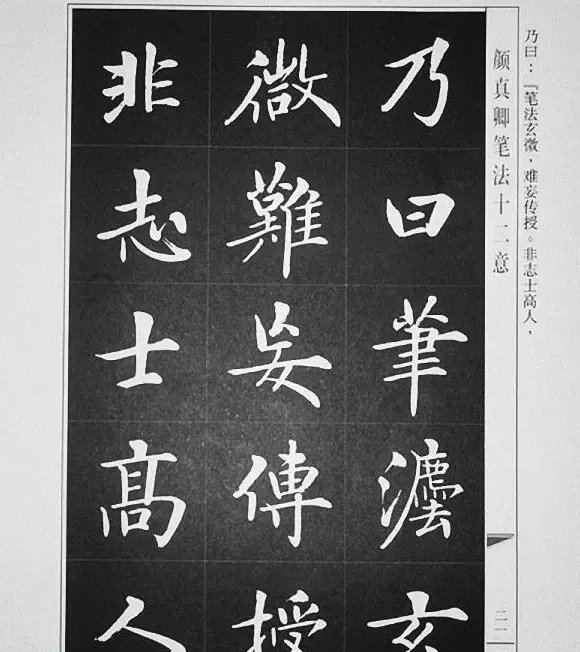 乃曰：『笔法玄微，难妄传授。非志士高人，
颜真卿笔法十二意
乃曰筆灋玄
微難妄傳授
非志士高人
二一